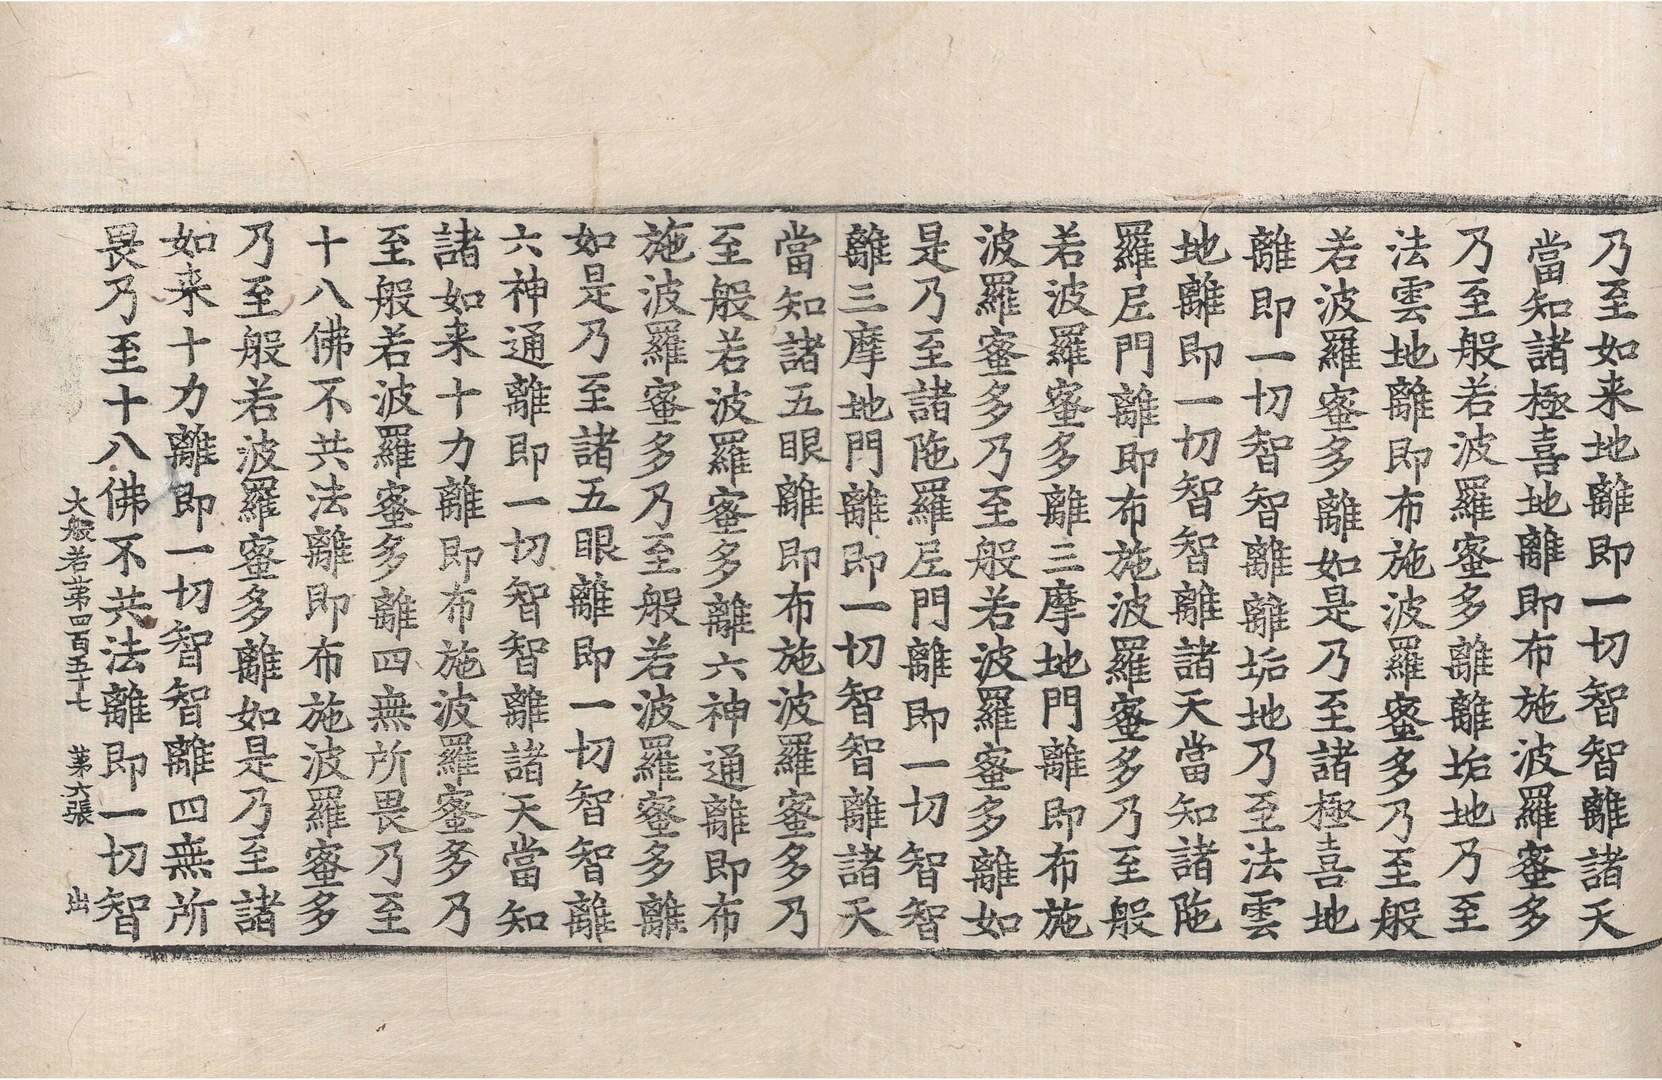 乃至如来地離即一切智智離諸天
當知諸極喜地離即布施波羅蜜多
乃至般若波羅蜜多離離垢地乃至
法雲地離即布施波羅蜜多乃至般
若波羅蜜多離如是乃至諸極喜地
離即一切智智離離垢地乃至法雲
地離即一切智智離諸天當知諸陁
羅尼門離即布施波羅蜜多乃至般
若波羅蜜多離三摩地門離即布施
波羅蜜多乃至般若波羅蜜多離如
是乃至諸陁羅尼門離即一切智智
離三摩地門離即一切智智離諸天
當知諸五眼離即布施波羅蜜多乃
至般若波羅蜜多離六神通離即布
施波羅蜜多乃至般若波羅蜜多離
如是乃至諸五眼離即一切智智離
六神通離即一切智智離諸天當知
諸如来十力離即布施波羅蜜多乃
至般若波羅蜜多離四無所畏乃至
十八佛不共法離即布施波羅蜜多
乃至般若波羅蜜多離如是乃至諸
如来十力離即一切智智離四無所
畏乃至十八佛不共法離即一切智
大般若苐四百五十七 苐六張 出